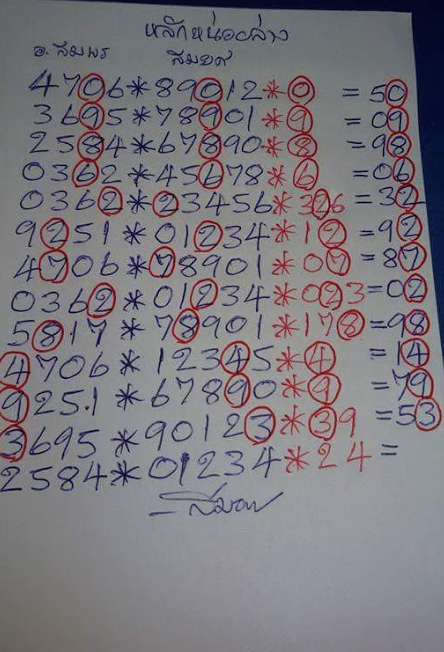 หลักหน่วยล่าง
อ. สมพร
4706*89012*0 = 50
3695*78901*9 = 09
2584*67890*8 = 98
0362*45678*6 = 06
0362*23456*326 = 32
9251*01234*12 = 92
4706*78901*07 = 87
0362*01234*023 = 02
5817*78901*178 = 98
4706*12345*4 = 14
925.1*67890*9 = 79
3695*90123*39 = 53
2584*01234*24 =